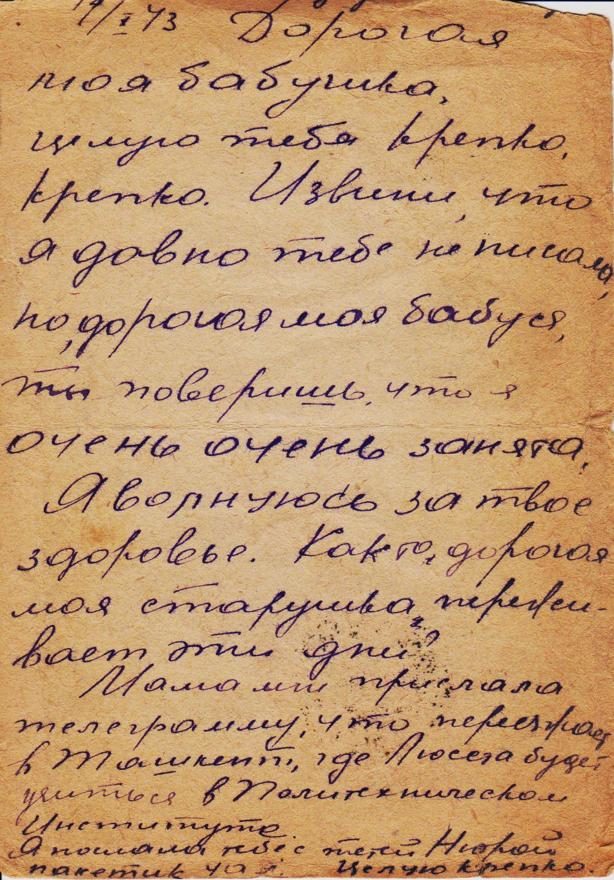 /I 43 Дорогая
моя бабушка,
целую тебя крепко,
крепко. Извини, что
я давно тебе не писала,
но, дорогая моя бабуся,
ты поверишь, что я
очень очень занята.
Я волнуюсь за твое
здоровье. Как то, дорогая
моя старушка, пережи-
вает эти дни?
Мама мне прислала
телеграмму, что переезжает
в Ташкент, где Люсета будет
учиться в Политехническом
Институте.
Я послала тебе с тетей Нюрой
пакетик чая. Целую крепко